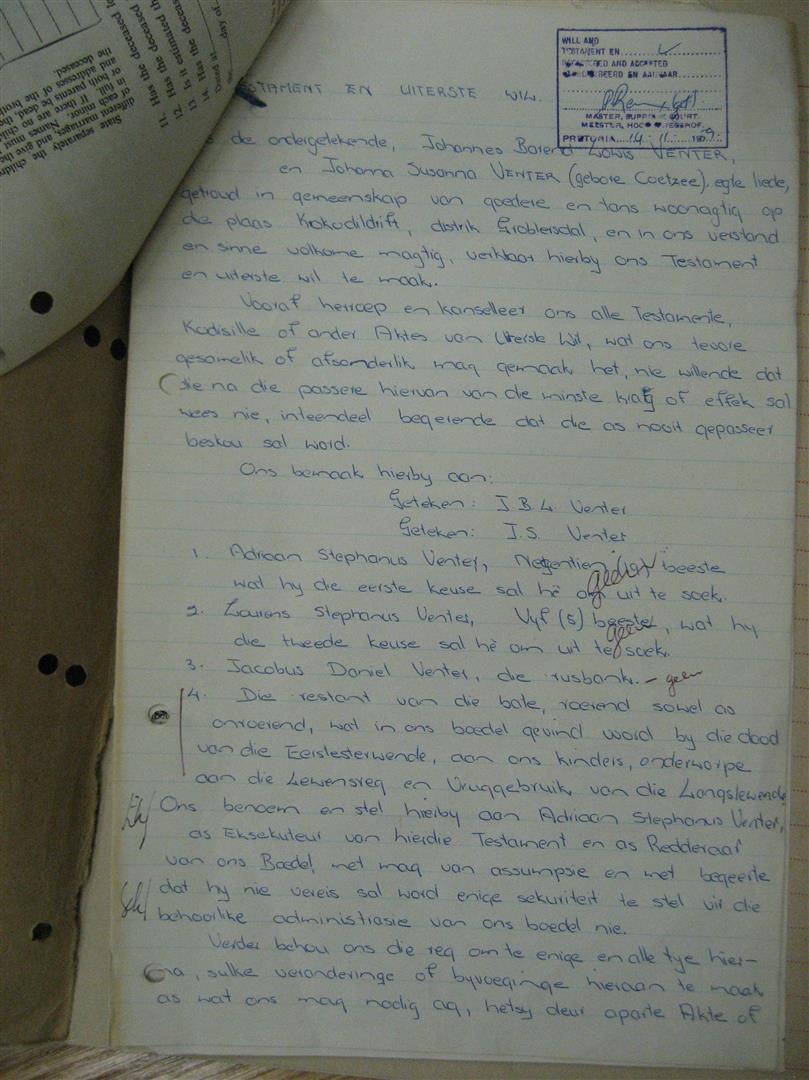 State separately the children
different marriages, and give the
of each minor. Names must
full. If there are no child
or both parents be dead, the
and addresses of the broth
the deceased.
11. Has the deceased
12. Has the deceased
13. Is it estimated th
14. Has the deceas
Dated at
day of
WILL AND
TESTAMENT EN
REGISTERED AND ACCEPTED
GEREGISTREERD EN AANVAAR
MASTER, SUPREME COURT.
MEESTER, HOOGGEREGSHOF.
PRETORIA 14.11.
TESTAMENT EN UITERSTE WIL.
de ondergetekende, Johannes Barend Lowis VENTER,
en Johanna Susanna VENTER (gebore Coetzee), egte liede,
getroud in gemeenskap van goedere en tans woonagtig op
die plaas Krokodildrift, distrik Groblersdal, en in ons verstand
en sinne volkome magtig, verklaar hierby ons Testament
en uiterste wil te maak.
Vooraf herroep en kanselleer ons alle Testamente,
Kodisille of ander Aktes van Uiterste Wil, wat ons tevore
gesamelik of afsonderlik mag gemaak het, nie willende dat
die na die passere hiervan van die minste krag of effek sal
wees nie, inteendeel begerende dat die as nooit gepasseer
beskou sal word.
Ons bemaak hierby aan:
Geteken: J.B.L. Venter
Geteken: J.S. Venter
1. Adriaan Stephanus Venter, Negentien (19) beeste
wat hy die eerste keuse sal hê om uit te soek.
2. Lourens Stephanus Venter, Vyf (5) beeste, wat hy
die tweede keuse sal hê om uit te soek.
3. Jacobus Daniel Venter, die rusbank. - geen
4. Die restant van die bate, roerend sowel as
onroerend, wat in ons boedel gevind word by die dood
van die Eerstesterwende, aan ons kinders, onderworpe
aan die Lewensreg en Vruggebruik van die Langslewende
Ons benoem en stel hierby aan Adriaan Stephanus Venter,
as Eksekuteur van hierdie Testament en as Redderaar
van ons Boedel, met mag van assumpsie en met begeerte
dat hy nie vereis sal word enige sekuriteit te stel vir die
behoorlike administrasie van ons boedel nie.
Verder behou ons die reg om te enige en alle tye hier-
na, sulke veranderinge of byvoeginge hieraan te maak
as wat ons mag nodig ag, hetsy deur aparte Akte of